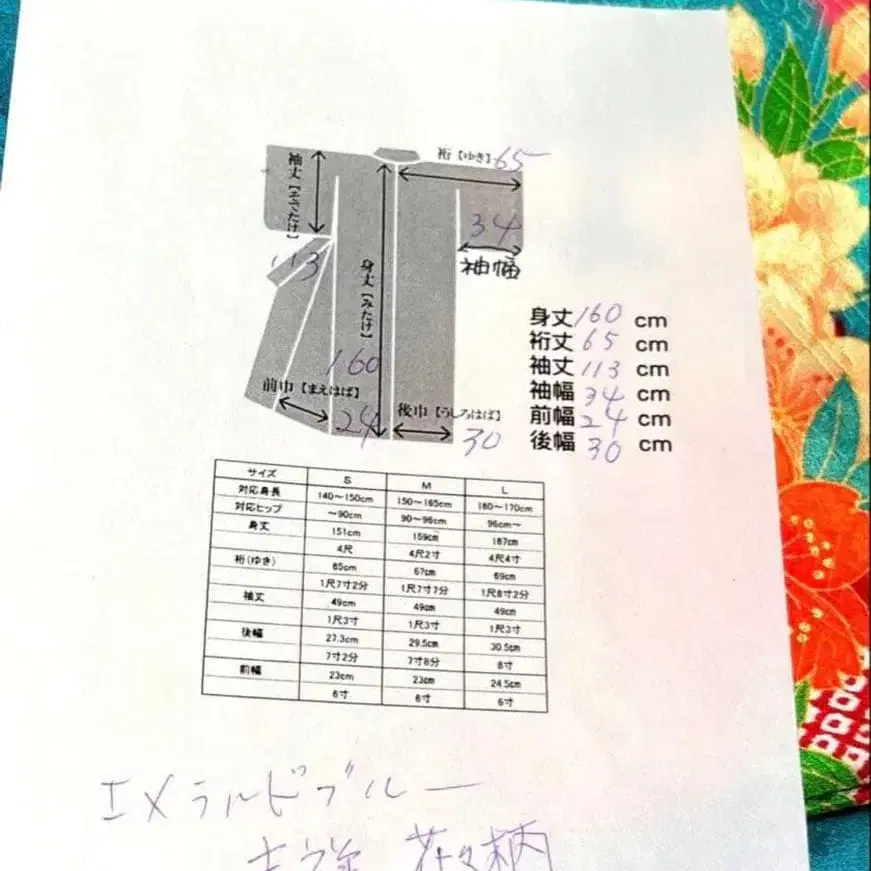 裄【ゆき】65
袖丈【そでたけ】
113
34
袖幅
身丈【みたけ】
160
前巾【まえはば】
24
後巾【うしろはば】
30
身丈 160 cm
裄丈 65 cm
袖丈 113 cm
袖幅 34 cm
前幅 24 cm
後幅 30 cm
サイズ S M L
対応身長 140〜150cm 150〜165cm 160〜170cm
対応ヒップ 〜90cm 90〜96cm 96cm〜
身丈 151cm 159cm 167cm
4尺 4尺2寸 4尺4寸
裄(ゆき) 65cm 67cm 69cm
1尺7寸2分 1尺7寸7分 1尺8寸2分
袖丈 49cm 49cm 49cm
1尺3寸 1尺3寸 1尺3寸
後幅 27.3cm 29.5cm 30.5cm
7寸2分 7寸8分 8寸
前幅 23cm 23cm 24.5cm
6寸 6寸 6寸
エメラルドブルー
花々柄